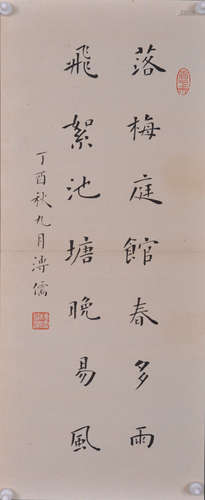 落梅庭館春多雨
飛絮池塘晚易風
丁酉秋九月溥儒